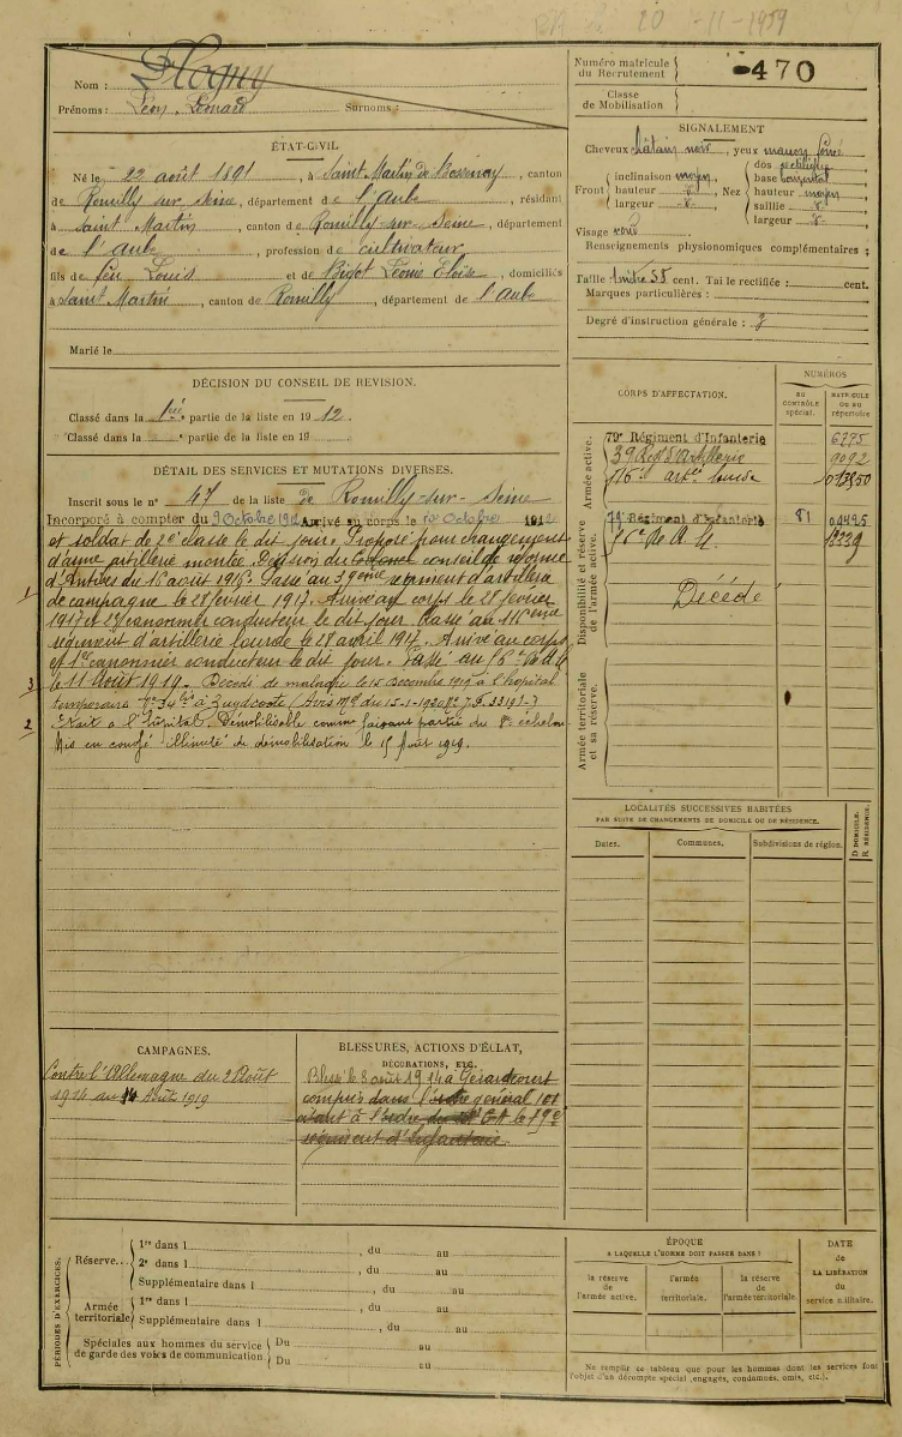 20 - 11 - 1959
Nom : Plogny
Prénoms : Léon, Léonard Surnoms :
ÉTAT-CIVIL
Né le 22 août 1891, à Saint Martin de Bossenay, canton
de Romilly sur Seine, département de l'Aube, résidant
à Saint Martin, canton de Romilly-sur-Seine, département
de l'Aube, profession de cultivateur
fils de feu Louis et de Bigot Léonie Eloïse, domiciliés
à Saint Martin, canton de Romilly, département de l'Aube
Marié le
DÉCISION DU CONSEIL DE REVISION.
Classé dans la 1ère partie de la liste en 1912.
Classé dans la e partie de la liste en 19
DÉTAIL DES SERVICES ET MUTATIONS DIVERSES.
Inscrit sous le n° 47 de la liste de Romilly-sur-Seine
Incorporé à compter du 9 Octobre 1912 Arrivé au corps le 10 Octobre 1912
et soldat de 2e classe le dit jour. Proposé pour changement
d'arme artillerie montée. Décision du Colonel conseil de réforme
d'Antibes du 16 août 1916. Passé au 39ème régiment d'artillerie
1 de campagne le 28 février 1917. Arrivé au corps le 28 février
1917 et 2e canonnier conducteur le dit jour. Passé au 116ème
régiment d'artillerie lourde le 28 avril 1917. Arrivé au corps
et 1er canonnier conducteur le dit jour. Passé au
3 le 11 Août 1919. Décédé de maladie le 15 décembre 1919 à l'hôpital
temporaire N° 34 bis à Zuydcoote (Avis du 15-1-1920
2 Etait à l'hôpital. Démobilisable comme faisant partie du 8e échelon
Mis en congé illimité de démobilisation le 15 Août 1919.
CAMPAGNES.
Contre l'Allemagne du 2 Août
1914 au 14 Août 1919
BLESSURES, ACTIONS D'ÉCLAT,
DÉCORATIONS, ETC.
Blessé le 8 août 1914 à Gérardcourt
compris dans l'ordre général 101
citant à l'ordre du CA le 79e
régiment d'Infanterie.
PÉRIODES D'EXERCICES.
Réserve... 1re dans l , du au
2e dans l , du au
Supplémentaire dans l , du au
Armée territoriale 1re dans l , du au
Supplémentaire dans l , du au
Spéciales aux hommes du service
de garde des voies de communication
Du au
Du au
Numéro matricule
du Recrutement
470
Classe
de Mobilisation
SIGNALEMENT
Cheveux châtain noir, yeux marron foncé
Front inclinaison moyen, hauteur, largeur
Nez dos rectiligne
base horizontal
hauteur moyen
saillie
largeur
Visage rond
Renseignements physionomiques complémentaires :
Taille 1 mètre 58 cent. Taille rectifiée : cent.
Marques particulières :
Degré d'instruction générale : 3
CORPS D'AFFECTATION.
NUMÉROS
AU CONTRÔLE spécial.
MATRICULE OU AU répertoire
Armée active.
79e Régiment d'Infanterie 6775
39 Régt d'Artillerie 9092
116e artie lourde 013950
Disponibilité et réserve de l'armée active.
79e Régiment d'Infanterie 81 09495
Décédé
Armée territoriale et sa réserve.
LOCALITÉS SUCCESSIVES HABITÉES
PAR SUITE DE CHANGEMENTS DE DOMICILE OU DE RÉSIDENCE.
Dates. Communes. Subdivisions de région.
D DOMICILE.
R RÉSIDENCE.
ÉPOQUE
A LAQUELLE L'HOMME DOIT PASSER DANS :
la réserve de l'armée active.
l'armée territoriale.
la réserve de l'armée territoriale.
DATE
de
LA LIBÉRATION
du
service militaire.
Ne remplir ce tableau que pour les hommes dont les services font
l'objet d'un décompte spécial (engagés, condamnés, omis, etc.).